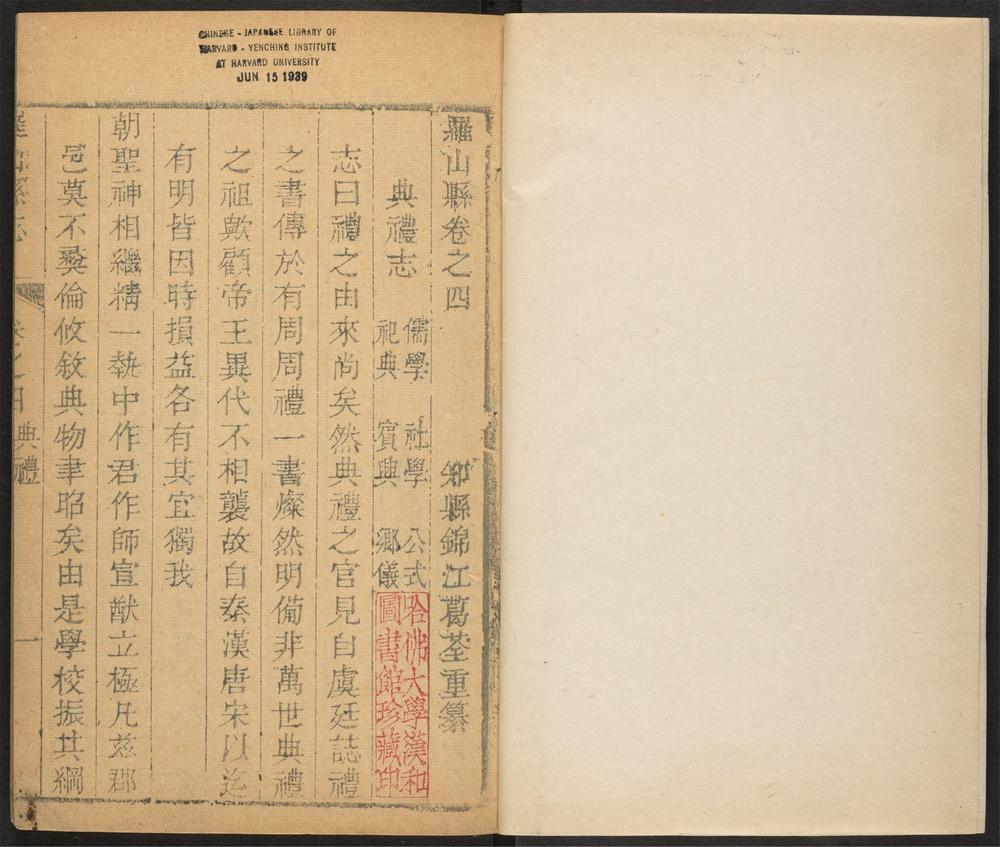 CHINESE - JAPANESE LIBRARY OF
HARVARD - YENCHING INSTITUTE
AT HARVARD UNIVERSITY
JUN 15 1939
羅山縣卷之四 知縣錦江葛荃重纂
典禮志 儒學 社學 公式
祀典 賓興 鄉儀
哈佛大學漢和
圖書館珍藏印
志曰禮之由來尚矣然典禮之官見自虞廷誌禮
之書傳於有周周禮一書燦然明備非萬世典禮
之祖歟顧帝王異代不相襲故自秦漢唐宋以迄
有明皆因時損益各有其宜獨我
朝聖神相繼精一執中作君作師宣猷立極凡茲郡
邑莫不彝倫攸敘典物聿昭矣由是學校振其綱
羅山縣志 卷之四 典禮 一